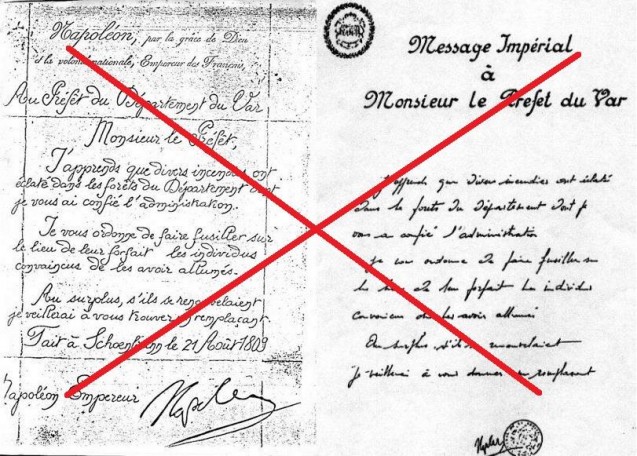 Napoléon, par la grâce de Dieu
et la volonté nationale, Empereur des Français,
Au Préfet du Département du Var
Monsieur le Préfet,
J'apprends que divers incendies ont
éclaté dans les forêts du Département dont
je vous ai confié l'administration.
Je vous ordonne de faire fusiller sur
le lieu de leur forfait les individus
convaincus de les avoir allumés.
Au surplus, s'ils se renouvelaient
je veillerai à vous trouver un remplaçant.
Fait à Schoenbrunn le 21 Août 1809
Napoléon Empereur
Message Impérial
à
Monsieur le Prefet du Var
que divers incendies ont éclaté
dans les forets du Département dont je
vous a confié l'administration
je vous ordonne de faire fusiller sur
le lieu de leur forfait les individus
convaincus de les avoir allumés
Au surplus s'ils se renouvelaient
je veillerai à vous donner un remplaçant